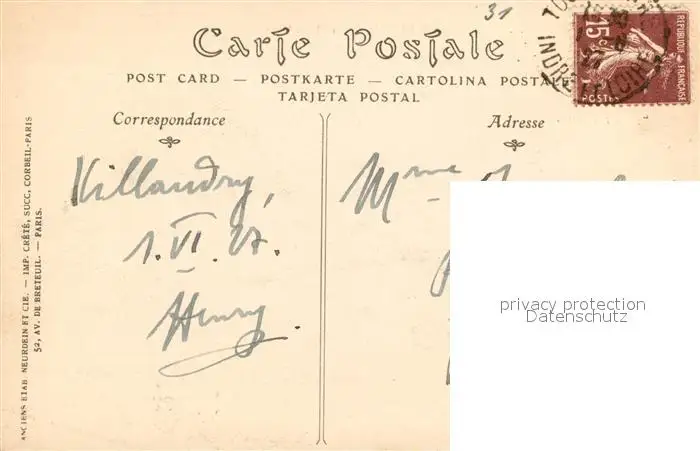 31
Carte Postale
POST CARD — POSTKARTE — CARTOLINA POSTALE
TARJETA POSTAL
Correspondance
Villandry,
1.VI.27.
Henry.
Adresse
Mme
15c
REPUBLIQUE FRANÇAISE
POSTES
INDRE ET LOIRE
privacy protection
Datenschutz
ANCIENS ETAB. NEURDEIN ET CIE. — IMP. CRÉTÉ, SUCC. CORBEIL-PARIS
52, AV. DE BRETEUIL. — PARIS.